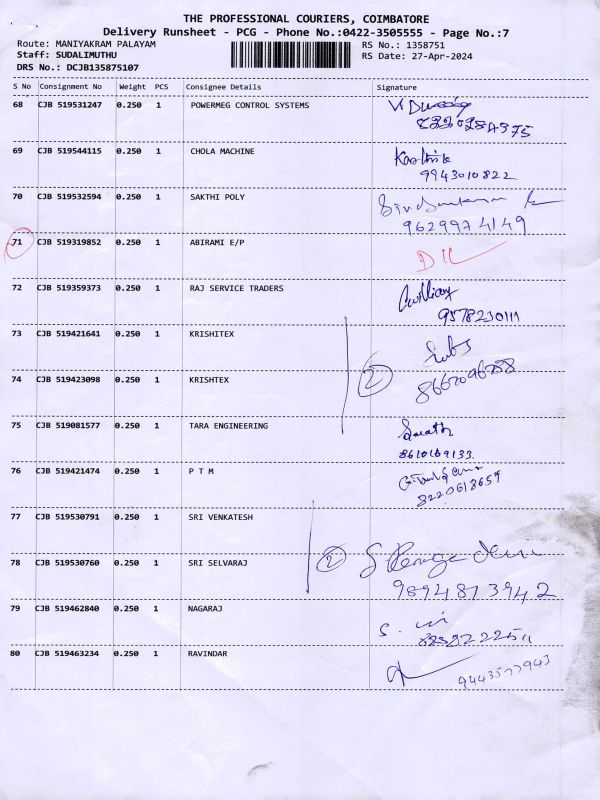 THE PROFESSIONAL COURIERS, COIMBATORE
Delivery Runsheet - PCG - Phone No.:0422-3505555 - Page No.:7
Route: MANIYAKRAM PALAYAM RS No.: 1358751
Staff: SUDALIMUTHU RS Date: 27-Apr-2024
DRS No.: DCJB135875107
S No Consignment No Weight PCS Consignee Details Signature
68 CJB 519531247 0.250 1 POWERMEG CONTROL SYSTEMS
69 CJB 519544115 0.250 1 CHOLA MACHINE Karthik
9943010822
70 CJB 519532594 0.250 1 SAKTHI POLY
9629974149
71 CJB 519319852 0.250 1 ABIRAMI E/P
72 CJB 519359373 0.250 1 RAJ SERVICE TRADERS
9578230111
73 CJB 519421641 0.250 1 KRISHITEX
74 CJB 519423098 0.250 1 KRISHTEX 2
75 CJB 519081577 0.250 1 TARA ENGINEERING Sarath
8610169133
76 CJB 519421474 0.250 1 P T M
8220618659
77 CJB 519530791 0.250 1 SRI VENKATESH
78 CJB 519530760 0.250 1 SRI SELVARAJ 2
9894873942
79 CJB 519462840 0.250 1 NAGARAJ
80 CJB 519463234 0.250 1 RAVINDAR
9443577943